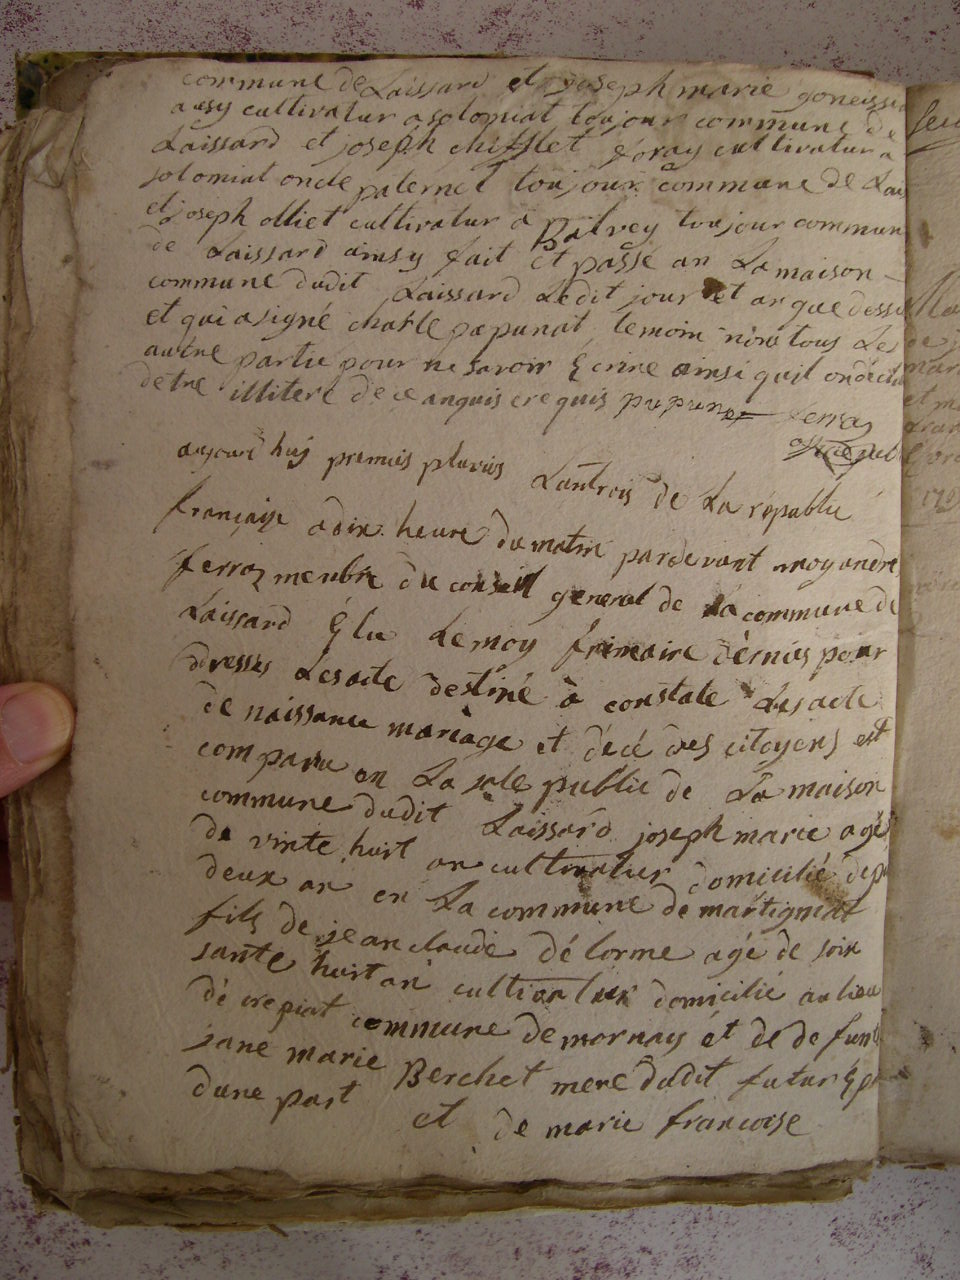 commune de Laissard et joseph marie goneissu
aussy cultivateur a solomiat toujour commune de
Laissard et joseph chifflet foray cultivateur a
solomiat oncle paternel toujour commune de Lais
et joseph olliet cultivatur a Balvey toujour commun
de Laissard ainsy fait et passé an La maison
commune dudit Laissard Ledit jour et an que dessu
et qui a signé charle papunat temoin non tous Les
autre partie pour ne savoir Ecrire ainsi quil on déclu
detre illiteré de ce anquis erequis papunat ferraz
officie publ
aujourd huy premies pluvios Lantrois de La république
française a dix heure du matin pardevant moy andre
ferraz menbre du conseil general de La commune de
Laissard Élu Le moy frimaire dérnies pour
dresses Les acte destiné à constate Les acte
de naissance mariage et décé des citoyens est
comparu en La sale public de La maison
commune dudit Laissard joseph marie agé
de vinte huit an cultivatur domicilié depu
deux an en La commune de martignat
fils de jean claude délorme agé de soix
sante huit an cultivateur domicilié au lieu
dé crepiat commune de mornay ét de defunt
jane marie Berchet mere dudit futur Ép
dune part et de marie francoise